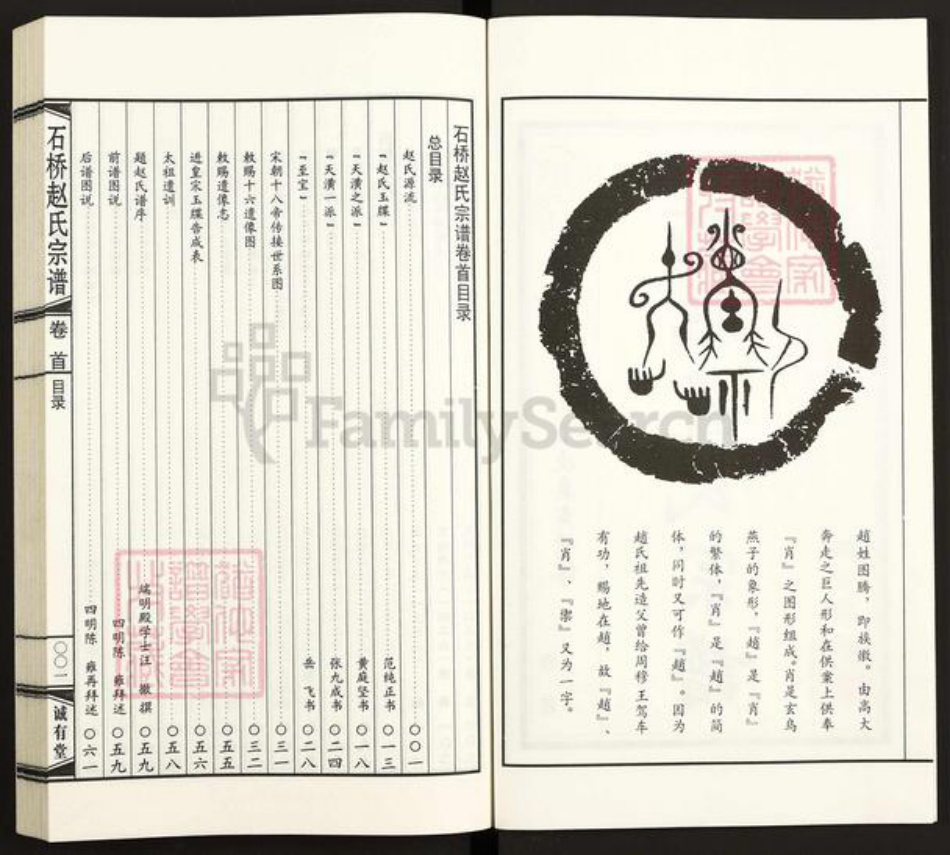 趙姓图腾，即族徽。由高大
奔走之巨人形和在供案上供奉
『肖』之图形组成。肖是玄鸟
燕子的象形。『趙』是『肖』
的繁体，『肖』是『趙』的简
体，同时又可作『趙』。因为
趙氏祖先造父曾给周穆王驾车
有功，赐地在趙，故『趙』、
『肖』、『禦』又为一字。
石桥赵氏宗谱卷首目录
总目录
赵氏源流 〇〇一
『赵氏玉牒』 范纯正书 〇一三
『天潢之派』 黄庭坚书 〇一八
『天潢一派』 张九成书 〇二四
『至宝』 岳飞书 〇二八
宋朝十八帝传接世系图 〇三一
敕赐十六遗像图 〇三二
敕赐遗像志 〇五五
进皇宋玉牒告成表 〇五六
太祖遗训 〇五八
题赵氏谱序 端明殿学士汪 撰 〇五九
前谱图说 四明陈 雍拜述 〇五九
后谱图说 四明陈 雍再拜述 〇六一
石桥赵氏宗谱
卷首
目录
〇〇一
诚有堂
FamilySearch